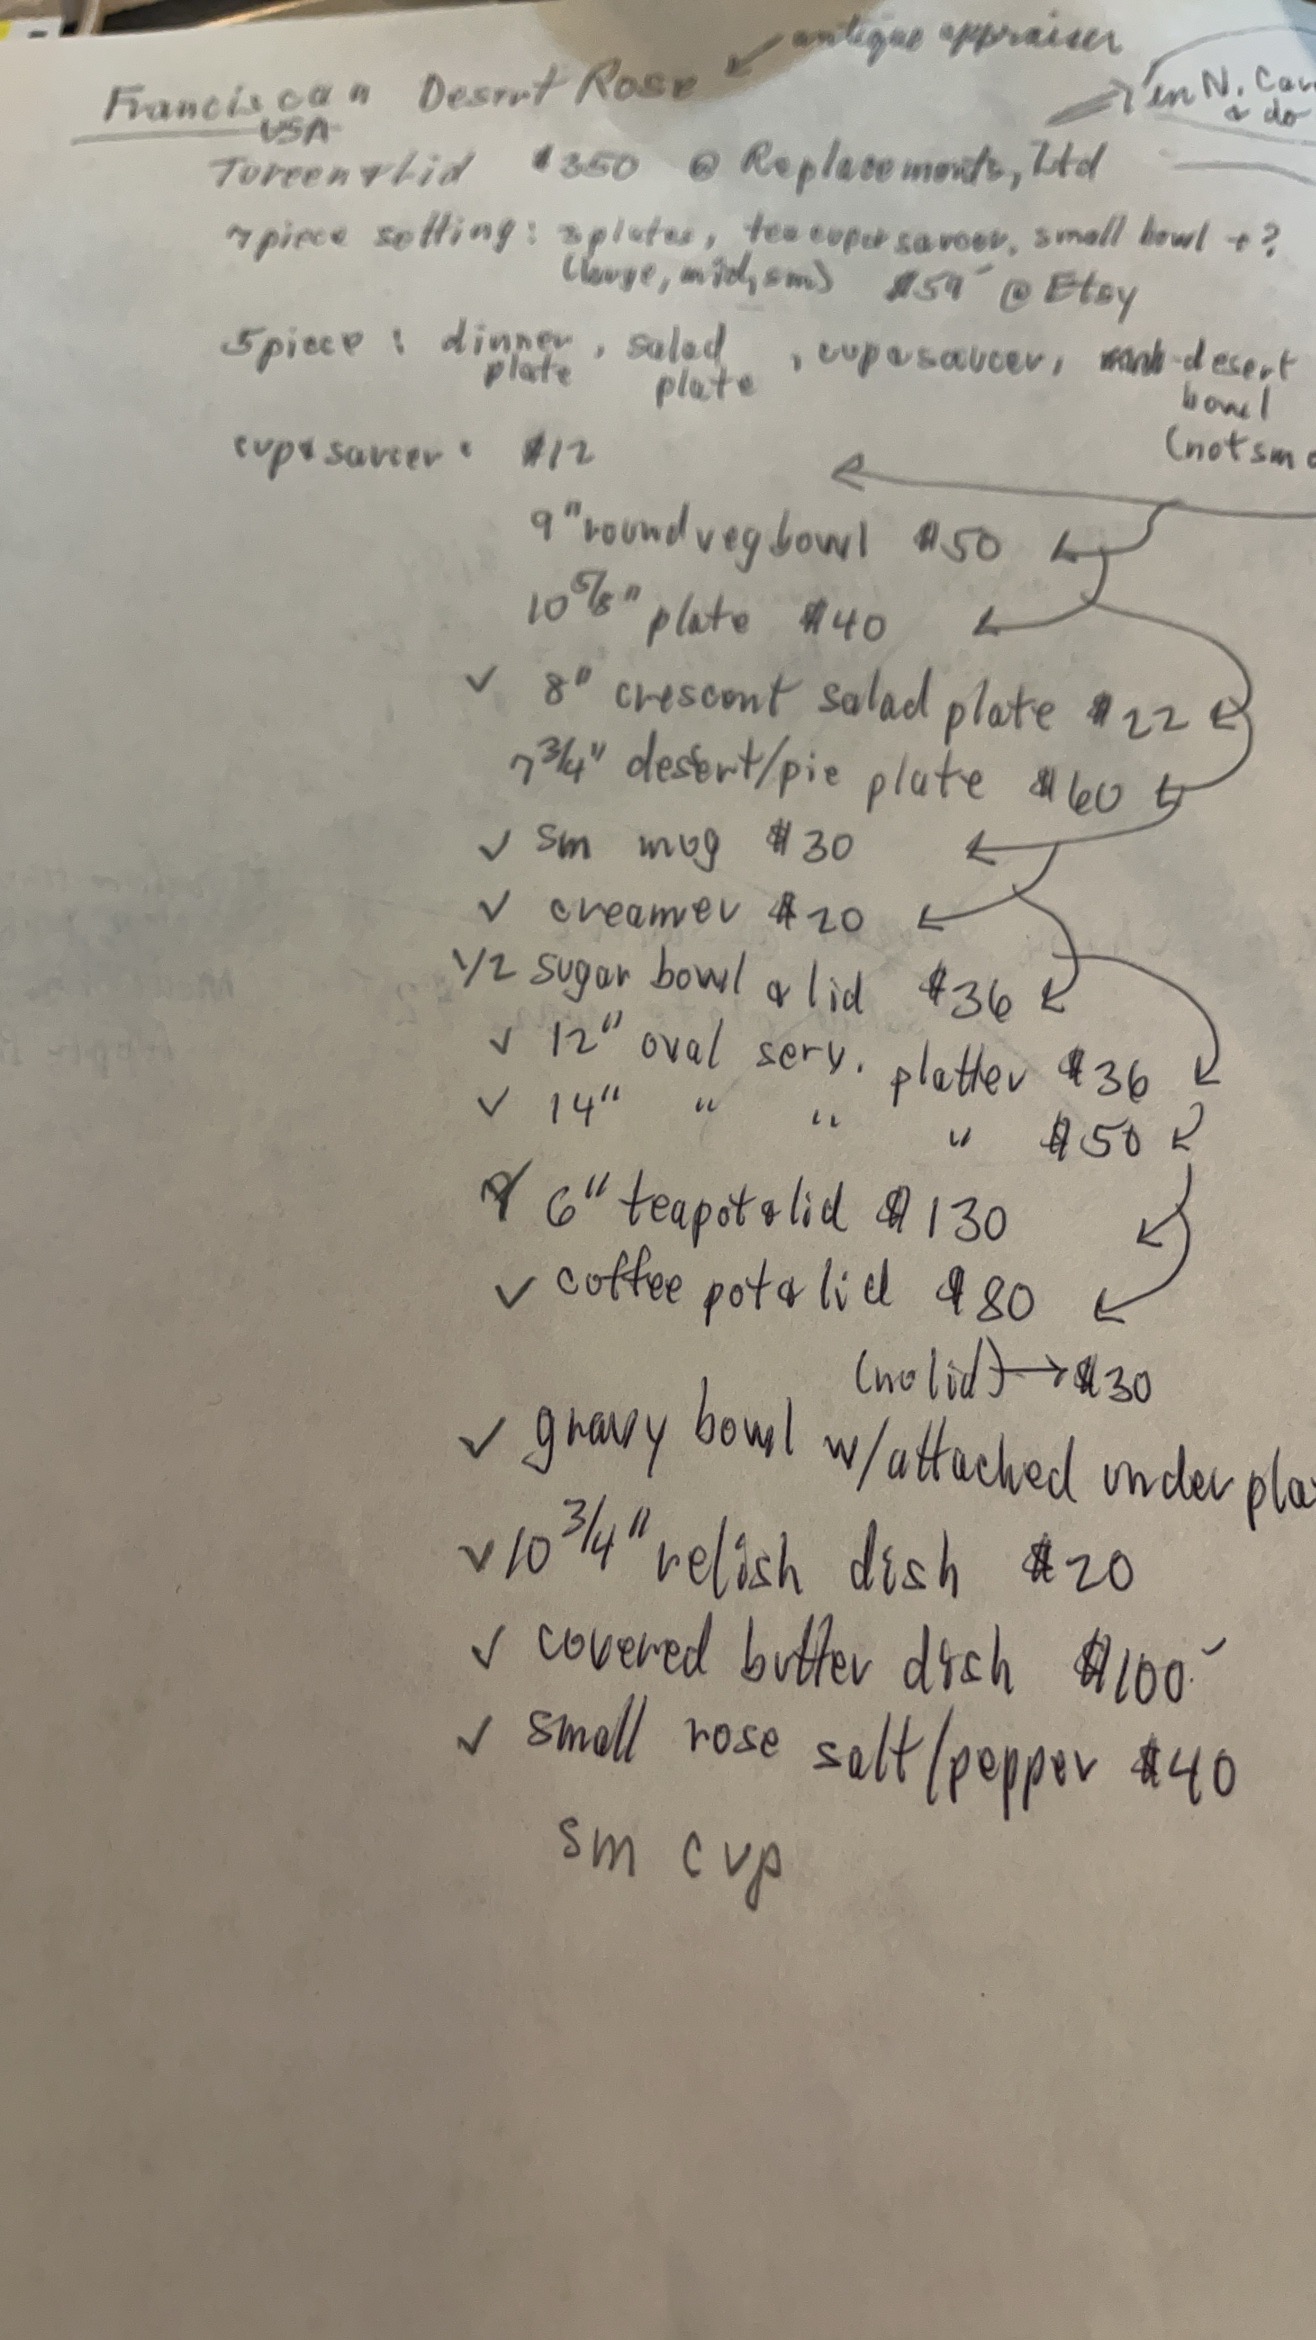 antique appraiser
Franciscan Desert Rose
USA
in N. Car
& do
Tureen & Lid $350 @ Replacements, Ltd
7 piece setting: 3 plates, teacup & saucer, small bowl + ?
(large, mid, sm) $59 @ Etsy
5 piece: dinner plate, salad plate, cup & saucer, desert bowl
(not sm
cup & saucer: $12
9" round veg bowl $50
10 5/8" plate $40
✓ 8" crescent salad plate $22
7 3/4" desert/pie plate $60
✓ sm mug $30
✓ creamer $20
1/2 sugar bowl & lid $36
✓ 12" oval serv. platter $36
✓ 14" " " " $50
6" teapot & lid $130
✓ coffee pot & lid $80
(no lid) → $30
✓ gravy bowl w/attached under pla
✓ 10 3/4" relish dish $20
✓ covered butter dish $100
✓ small rose salt/pepper $40
sm cup